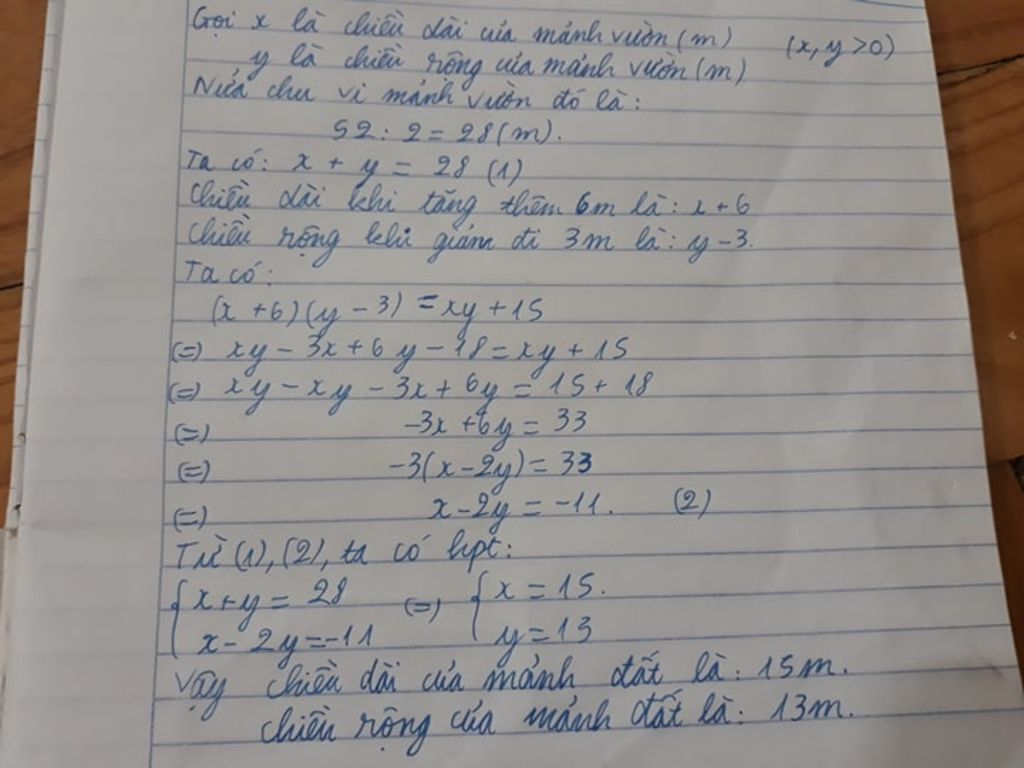 Gọi x là chiều dài của mảnh vườn (m) (x, y >0)
y là chiều rộng của mảnh vườn (m)
Nửa chu vi mảnh vườn đó là:
52 : 2 = 28 (m).
Ta có: x + y = 28 (1)
Chiều dài khi tăng thêm 6m là: x + 6
Chiều rộng khi giảm đi 3m là: y - 3.
Ta có:
(x + 6) (y - 3) = xy + 15
(=) xy - 3x + 6y - 18 = xy + 15
(=) xy - xy - 3x + 6y = 15 + 18
(=) -3x + 6y = 33
(=) -3(x - 2y) = 33
(=) x - 2y = -11. (2)
Từ (1), (2), ta có hpt:
{ x + y = 28 (=) { x = 15.
x - 2y = -11 y = 13
Vậy chiều dài của mảnh đất là: 15m.
chiều rộng của mảnh đất là: 13m.